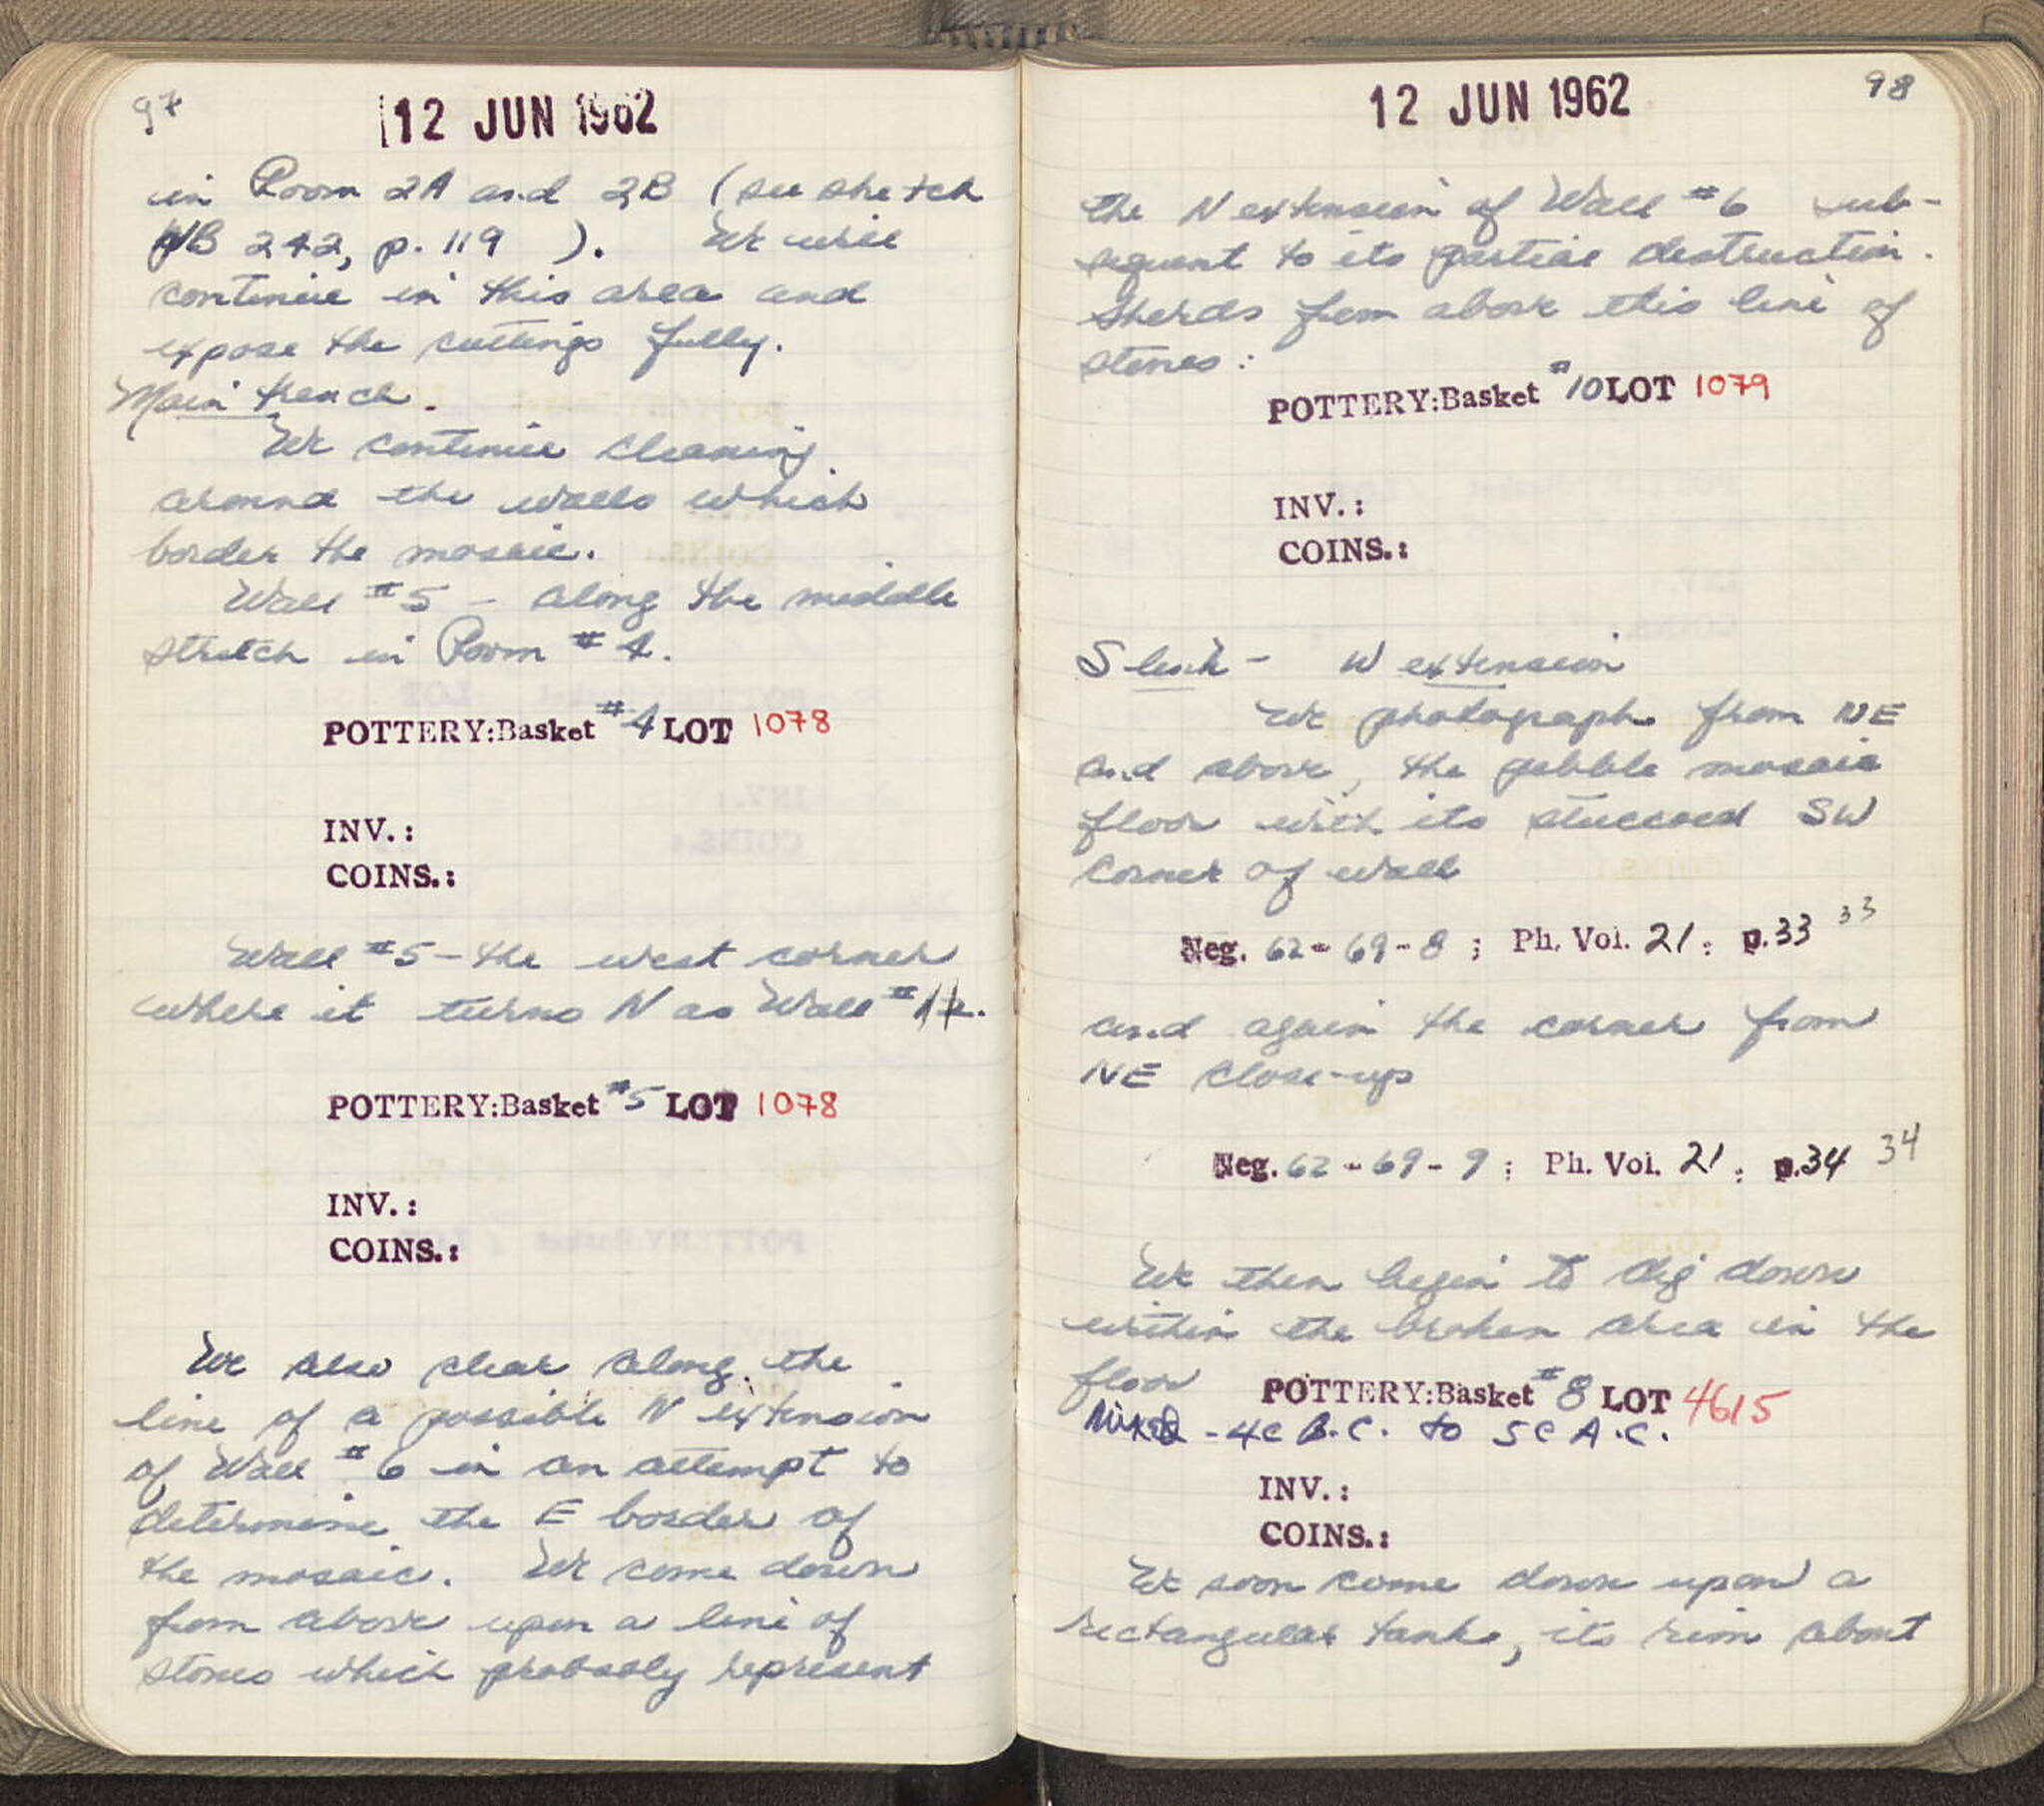 97
12 JUN 1962
in Room 2A and 2B (see sketch
NB 242, p. 119 ). We will
continue in this area and
expose the cuttings fully.
Main trench.
We continue cleaning
around the walls which
border the mosaic.
Wall #5 - along the middle
stretch in Room #4.
POTTERY:Basket #4 LOT 1078
INV.:
COINS.:
Wall #5 - the west corner
where it turns N as Wall #
POTTERY:Basket #5 LOT 1078
INV.:
COINS.:
We also clear along the
line of a possible N extension
of Wall #6 in an attempt to
determine the E border of
the mosaic. We come down
from above upon a line of
stones which probably represent
98
12 JUN 1962
the N extension of Wall #6 sub-
sequent to its partial destruction.
Sherds from above this line of
stones:
POTTERY:Basket #10 LOT 1079
INV.:
COINS.:
S - W extension
We photograph from NE
and above, the pebble mosaic
floor with its stuccoed SW
corner of wall
Neg. 62-69-8 ; Ph. Vol. 21 : p.33 33
and again the corner from
NE close-up
Neg. 62-69-9 ; Ph. Vol. 21 : p.34 34
We then begin to dig down
within the broken area in the
floor POTTERY:Basket #8 LOT 4615
Mixed - 4C B.C. to 5C A.C.
INV.:
COINS.:
We soon come down upon a
rectangular tank, its rim about